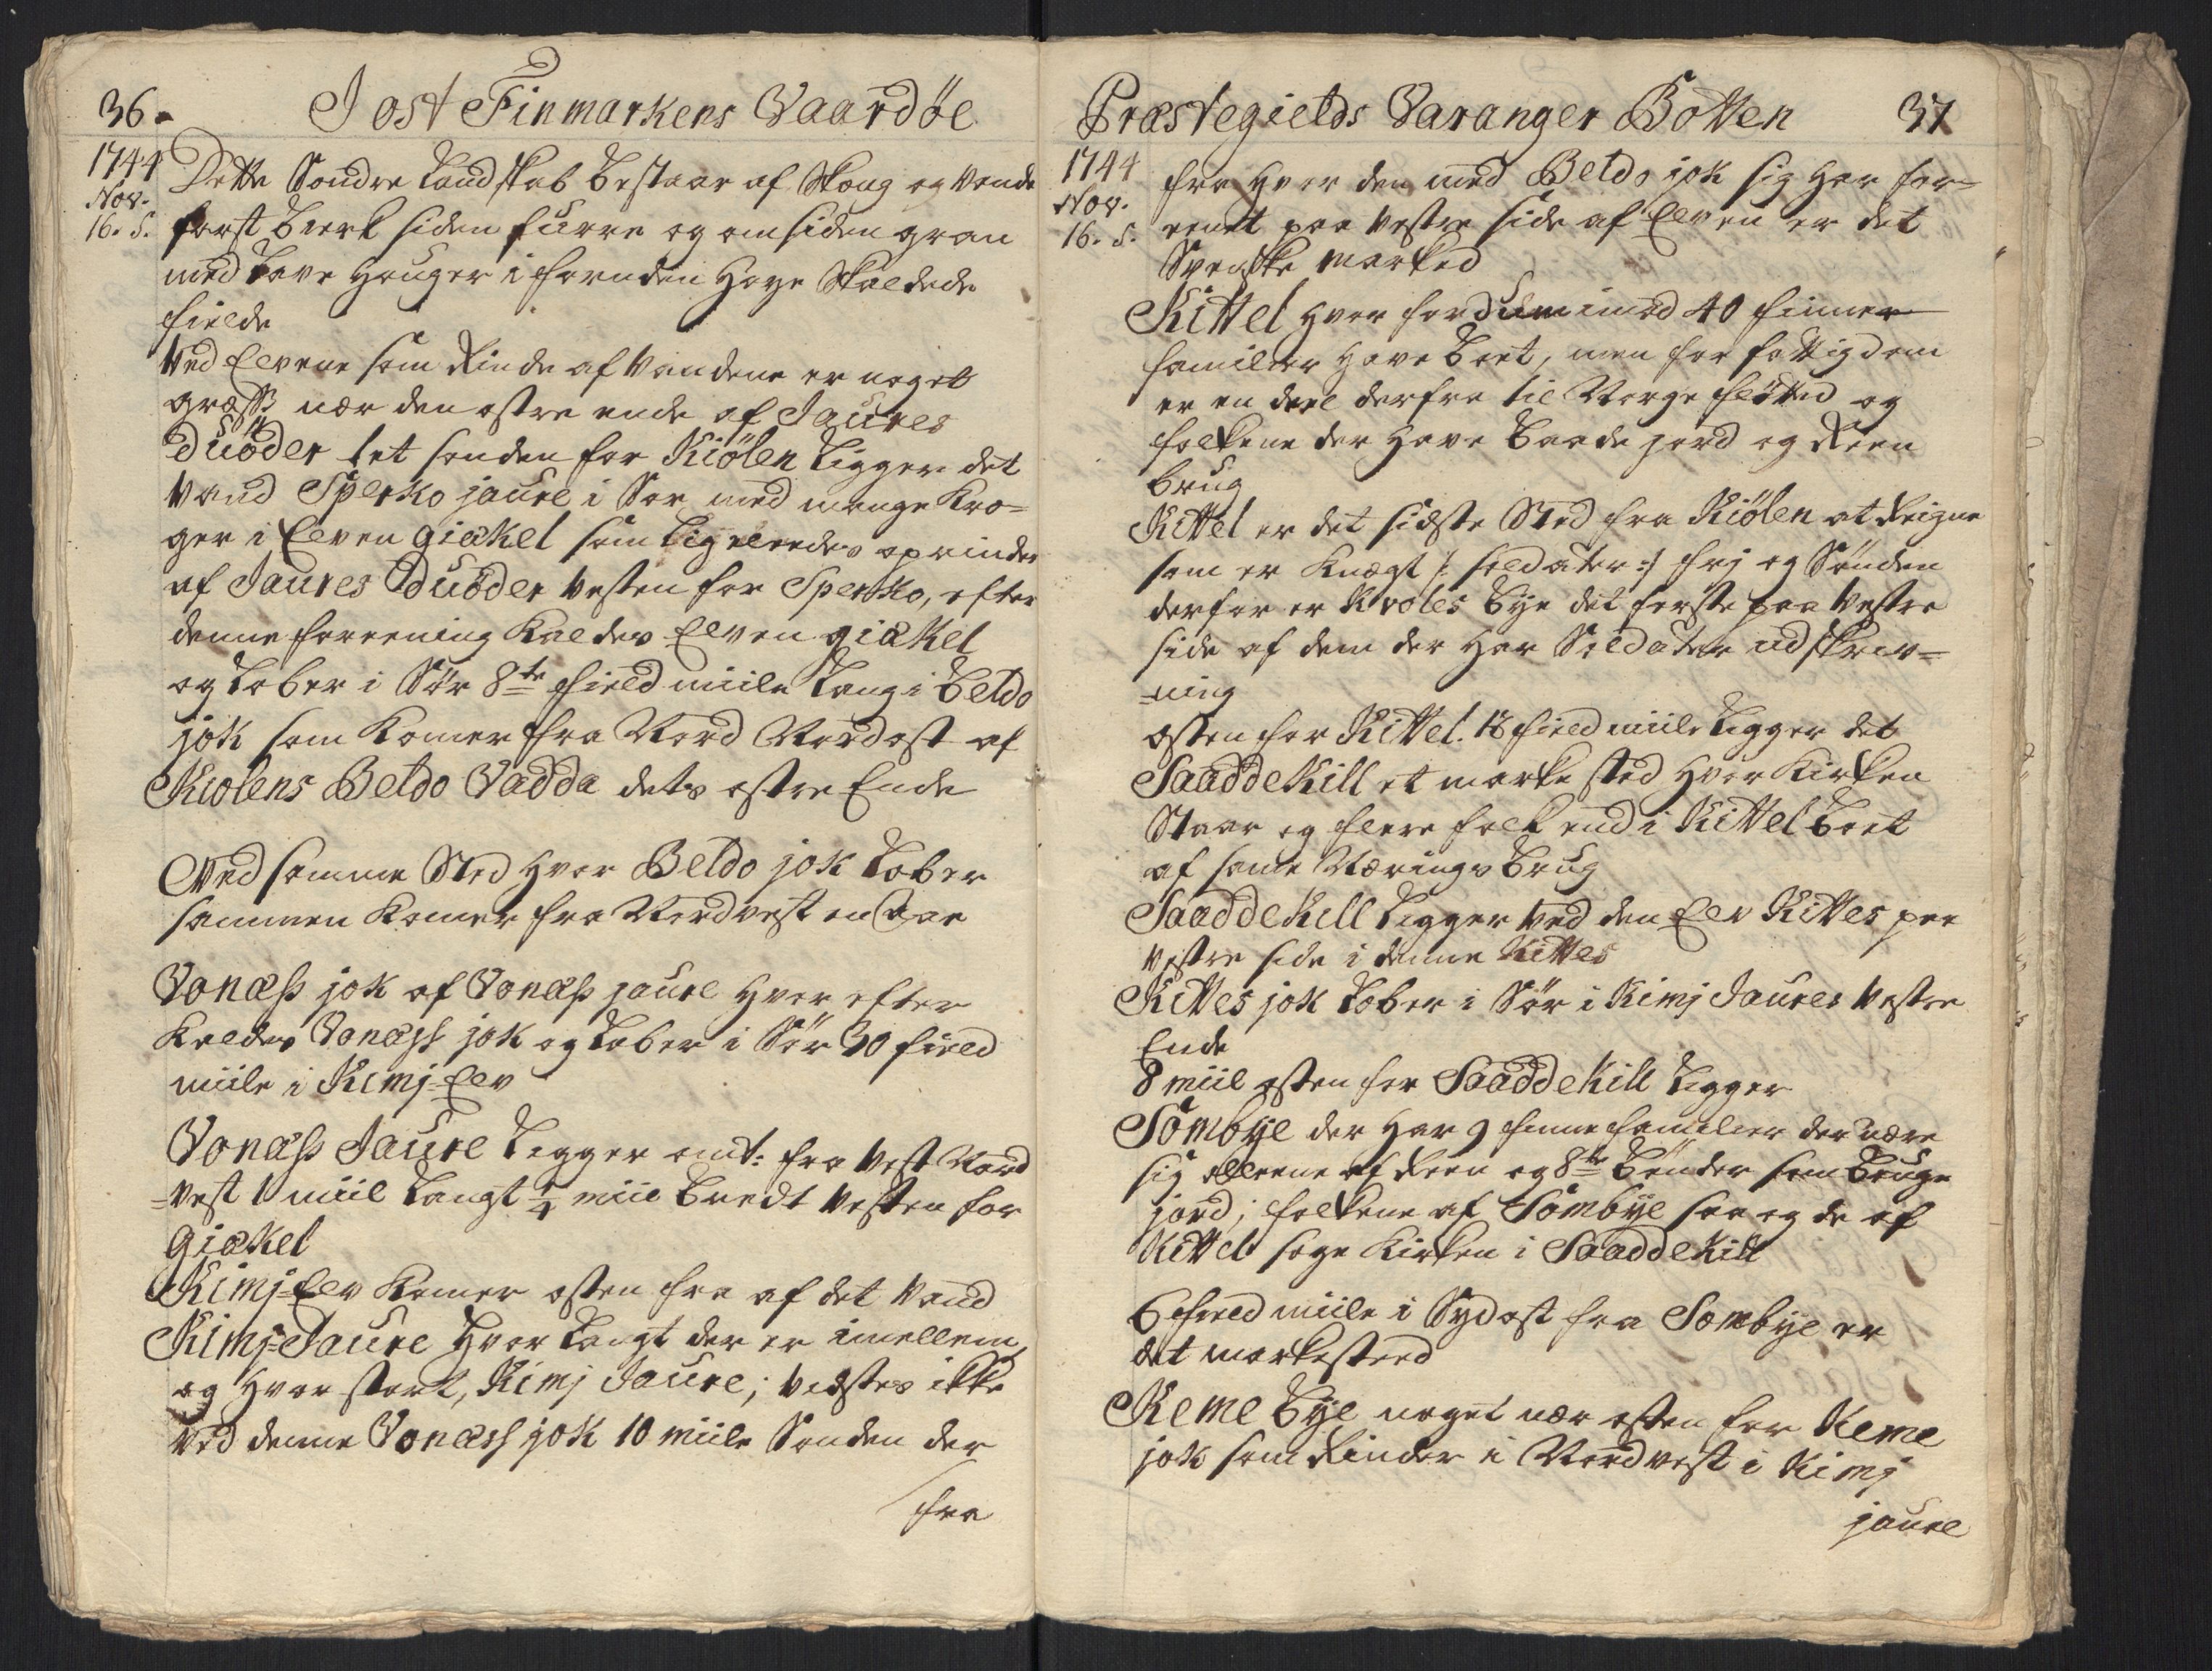 36.
I ost Finmarkens Vaardöe
1744
Nov.
16. S.
Dette Sondre Landskab bestaar af Skoug og Vande
først birk siden furre og omsiden gran
med Lave Houger i foruden Høye Skaldede
fielde
Ved Elvene som Rinde af Vandene er noget
græss nær den østre ende af Jaures
duöder let sønden for Kiölen Ligger det
Vand Sperko jaure i Sør med mange Kro=
ger i Elven giækel som Ligeleedes oprinder
af Jaures Duöder vesten for Sperko, efter
denne foreening kaldes Elven giækel
og Løber i Sør 8te field miile Lang i Beldo
jok som komer fra Nord Nordost af
Kiölens Beldo Vadda dets østre Ende
Ved samme Sted hvor Beldo jok Løber
sammen komer fra Nordvest en Aae
Vonæss jok af Vonæss jaure hvor efter
kaldes Vonæss jok og Løber i Sør 30 field
miile i Kimj=Elv
Vonæss Jaure Ligger omt: fra Vest Nord
=vest 1 miil Langt ¼ miil bredt vesten for
Giækel
Kimj=Elv komer østen fra af det Vand
Kimj=Jaure hvor Langt der er imellem,
og hvor stort, Kimj Jaure; vidstes ikke
ved denne Vonæss jok 10 miile Sønden der
fra
Præstegields Varanger Botten
37
1744
Nov.
16. S.
fra hvor den med Beldo jok sig har for=
eenet paa vestre side af Elven er det
Svenske marked
Kittel hvor fordum imod 40 finner
familier have boet, men for fattigdom
er en deel derfra til Norge flötted og
folkene der have baade jord og Reen
brug
Kittel er det sidste Sted fra Kiölen at Reigne
som er Knægt /: soldater :/ frj og Sönden
derfor er Kvoles bye det første paa vestre
side af dem der har Soldater udskriv=
=ning
østen for Kittel. 18 field miile Ligger det
Saaddekill et marke sted hvor Kirken
Staar og flere folk end i Kittel boet
af same Nærings brug
Saaddekill Ligger ved den Elv Kittes paa
vestre side i denne Kittes
Kittes jok Løber i Sör i Kimj Jaures vestre
Ende
8 miil østen for Saaddekill Ligger
Sombÿe der har 9 finne familier der nære
sig alleene af Reen og 8te bönder som bruge
jord; folkene af Sombÿe saa og de af
Kittel søge Kirken i Saaddekill
6 field miile i Sydost fra Sombÿe er
det markested
Keme bÿe noget nær østen for Keme
jok som Rinder i Nordvest i Kimj
jaure